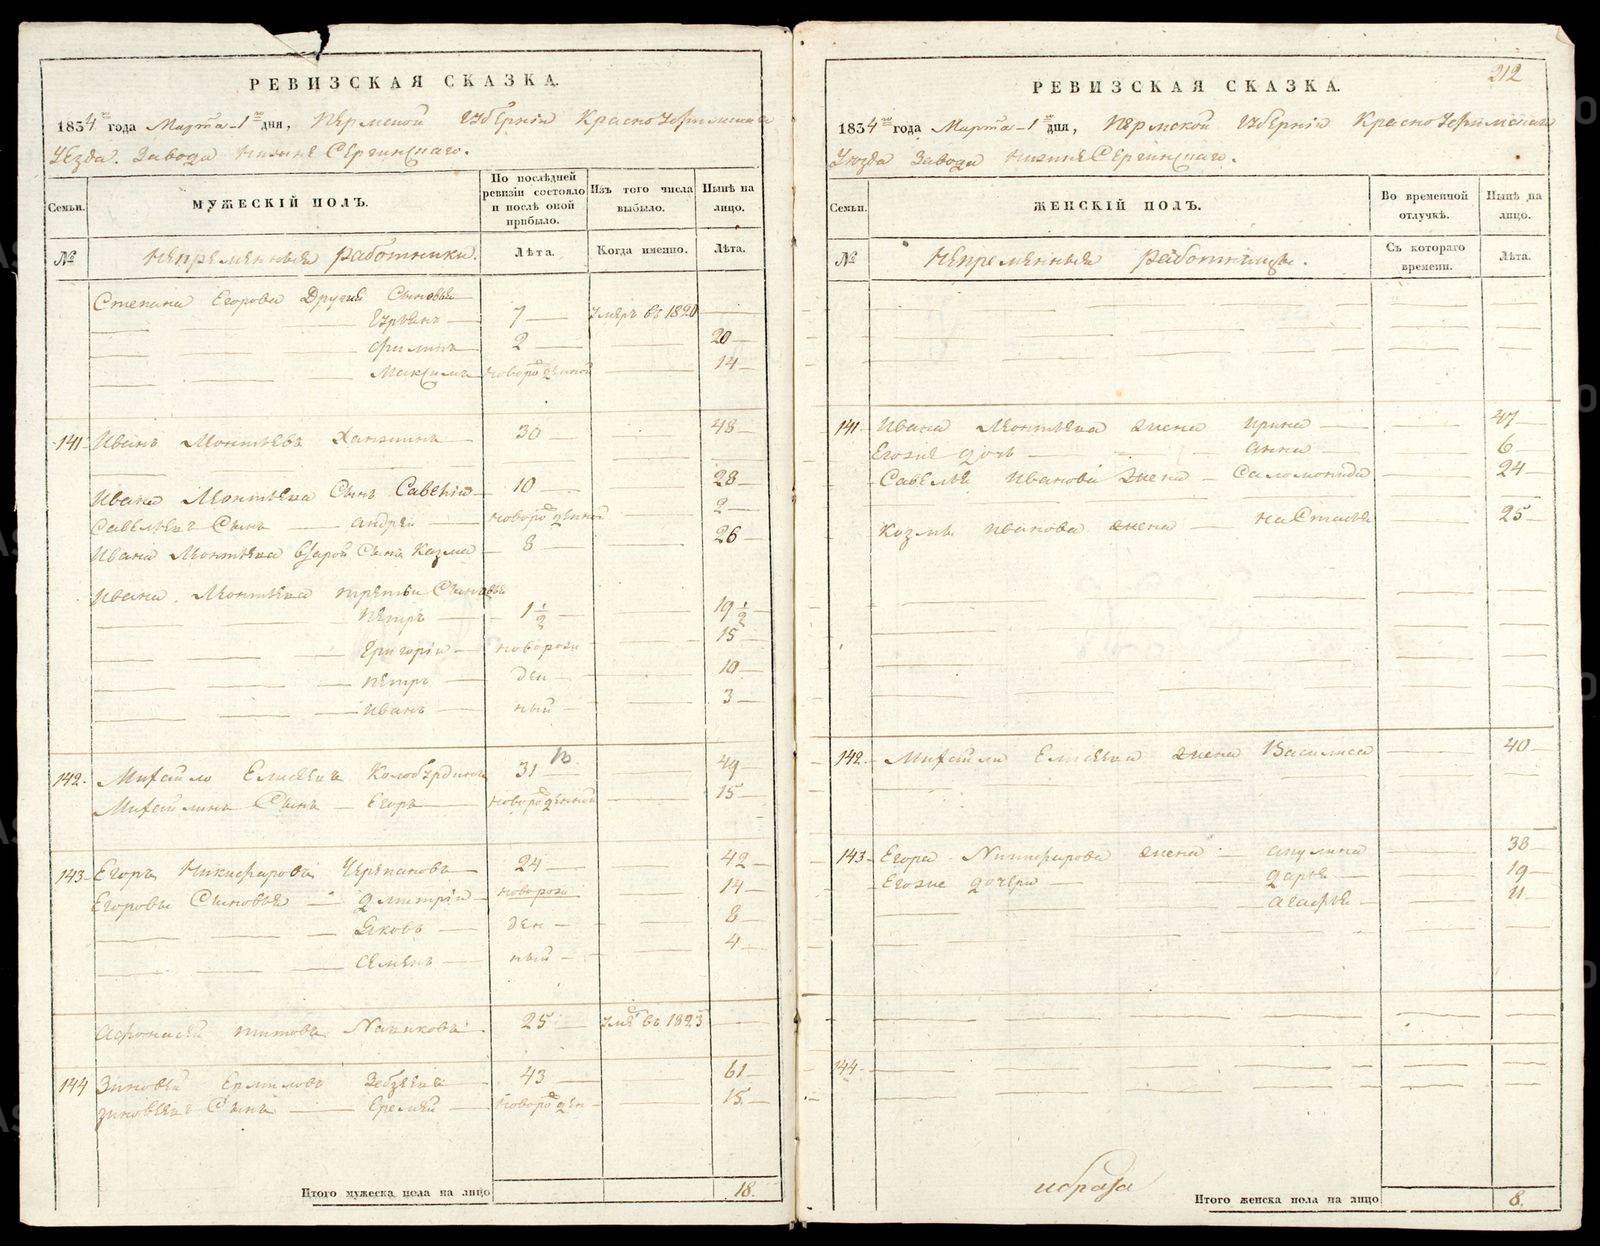 РЕВИЗСКАЯ СКАЗКА.
1834 го года Марта 1 го дня, Пермской Губерніи Красноуфимскаго
Уезда. Завода Нижне Сергинскаго.
Семьи.
МУЖЕСКІЙ ПОЛЪ.
По послѣдней ревизіи состояло и послѣ оной прибыло.
Изъ того числа выбыло.
Нынѣ на лицо.
№
Непременныя работники.
Лѣта.
Когда именно.
Лѣта.
Степана Егорова Другие Сыновья
7 умеръ въ 1820
Филипъ 2 20
Максимъ новорожденной 14
141 Иванъ Леонтьевъ 30 48
Ивана Леонтьева Сынъ Савелій 10 28
Савельевъ Сынъ Андрей новорожденной 2
Ивана Леонтьева Второй Сынъ Казма 8 26
Ивана Леонтьева третьи Сыновья
Петръ 1 1/2 19 1/2
Григорій новорож 15
Петръ ден 10
Иванъ ный 3
142 Михайло Елисеевъ 31 49
Михайлинъ Сынъ Егоръ новорожденной 15
143 Егоръ Никифоровъ Черепановъ 24 42
Егоровы Сыновья Дмитрій новорож 14
Яковъ ден 8
Семенъ ный 4
Афонасей Титовъ 25 умеръ въ 1823
144 Зиновей Ермиловъ 43 61
Зиновьевъ Сынъ Еремей новорожден 15
Итого мужеска пола на лицо 18.
212
РЕВИЗСКАЯ СКАЗКА.
1834 го года Марта 1 го дня, Пермской Губерніи Красноуфимскаго
Уезда Завода Нижне Сергинскаго.
Семьи.
ЖЕНСКІЙ ПОЛЪ.
Во временной отлучкѣ.
Нынѣ на лицо.
№
Непременныя работницы.
Съ котораго времени.
Лѣта.
141 Ивана Леонтьева жена Ирина 47
Егоже дочь Анна 6
Савелья Иванова жена Саломонида 24
Козмы Иванова жена Настасья 25
142 Михайли Елисеева жена Василиса 40
143 Егора Никифорова жена Акулина 38
Егоже дочери Дарья 19
Агафья 11
144
Итого женска пола на лицо 8.